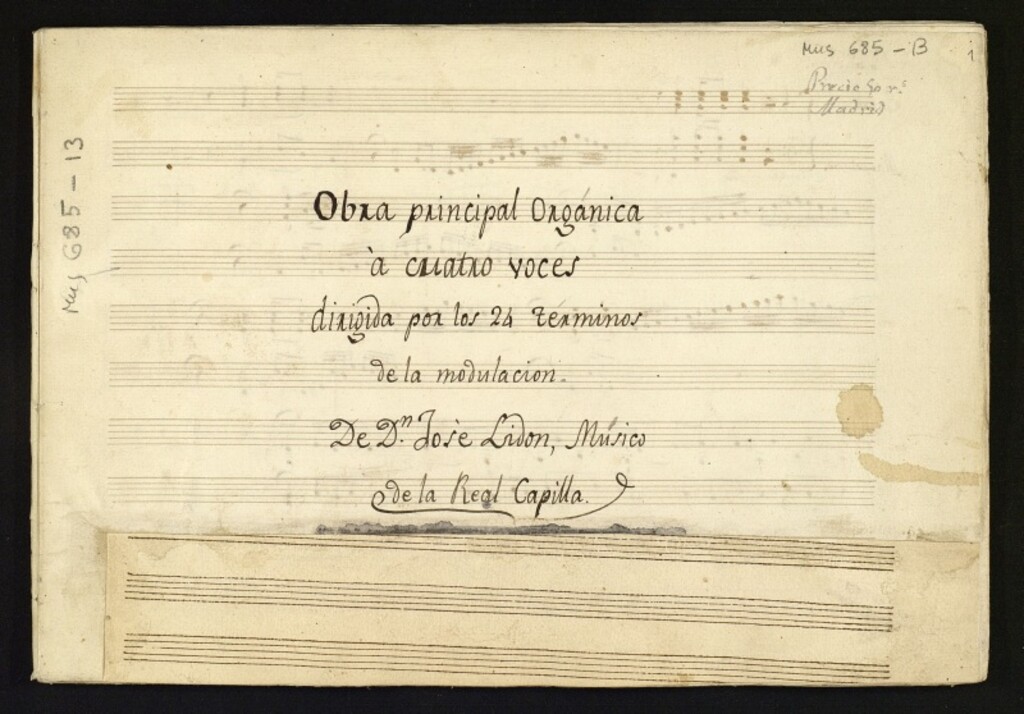 Mus 685-13
1
Precio 50 rs
Madrid
Mus 685-13
Obra principal Orgánica
à cuatro voces
dirigida por los 24 términos
de la modulacion.
De Dn. Josè Lidon, Músico
de la Real Capilla.